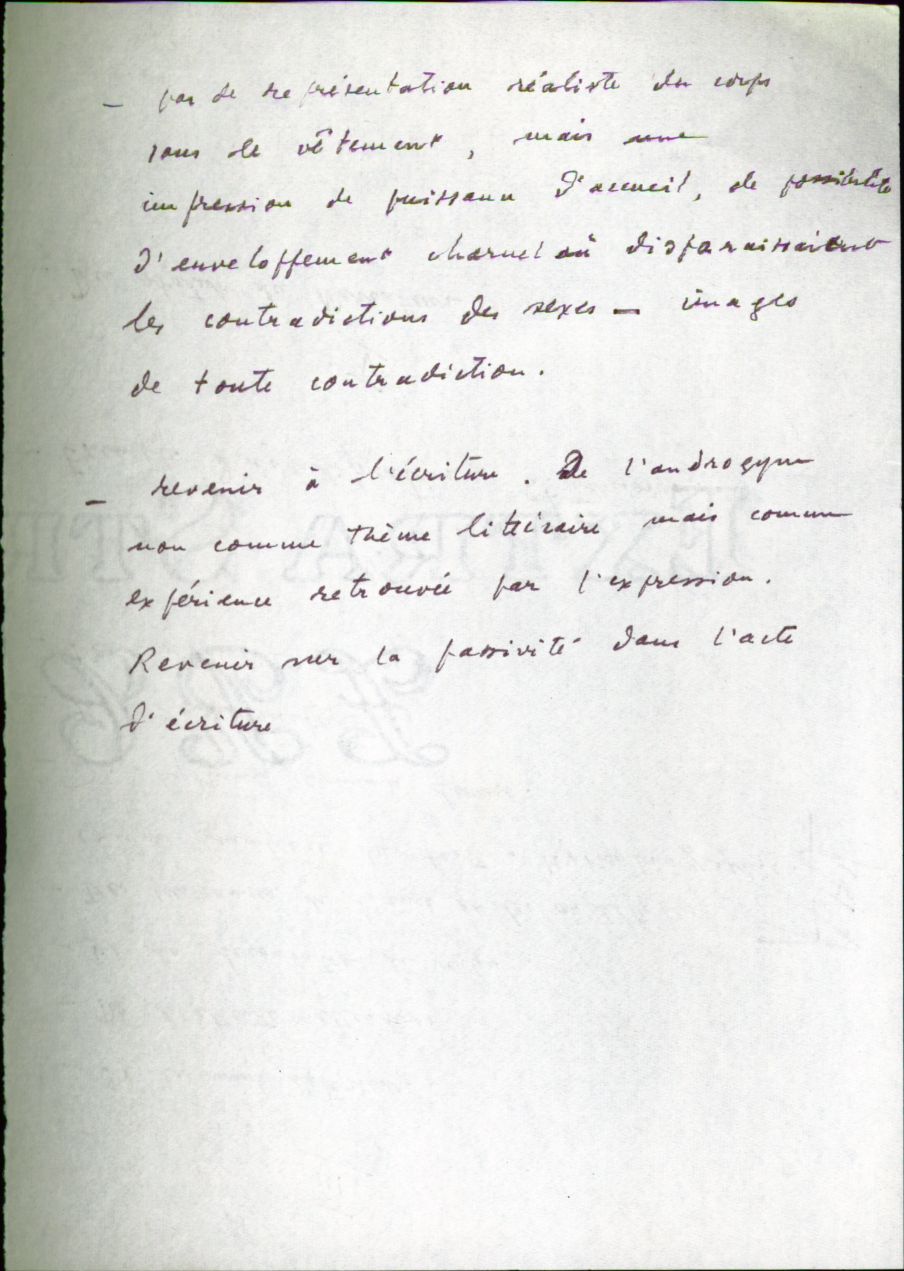 – pas de représentation réaliste du corps
sous le vêtement, mais une
impression de puissance d'accueil, de possibilité
d'enveloppement charnel où disparaissaient
les contradictions des sexes – images
de toute contradiction.
– revenir à l'écriture. De l'androgyne
non comme thème littéraire mais comme
expérience retrouvée par l'expression.
Revenir sur la passivité dans l'acte
d'écriture